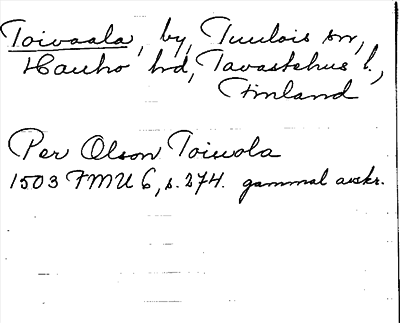 Toivaala, by, Tuulois sn,
Hauho hd, Tavastehus l.,
Finland
Per Olson Toiwola
1503 FMU 6, s. 274. gammal avskr.